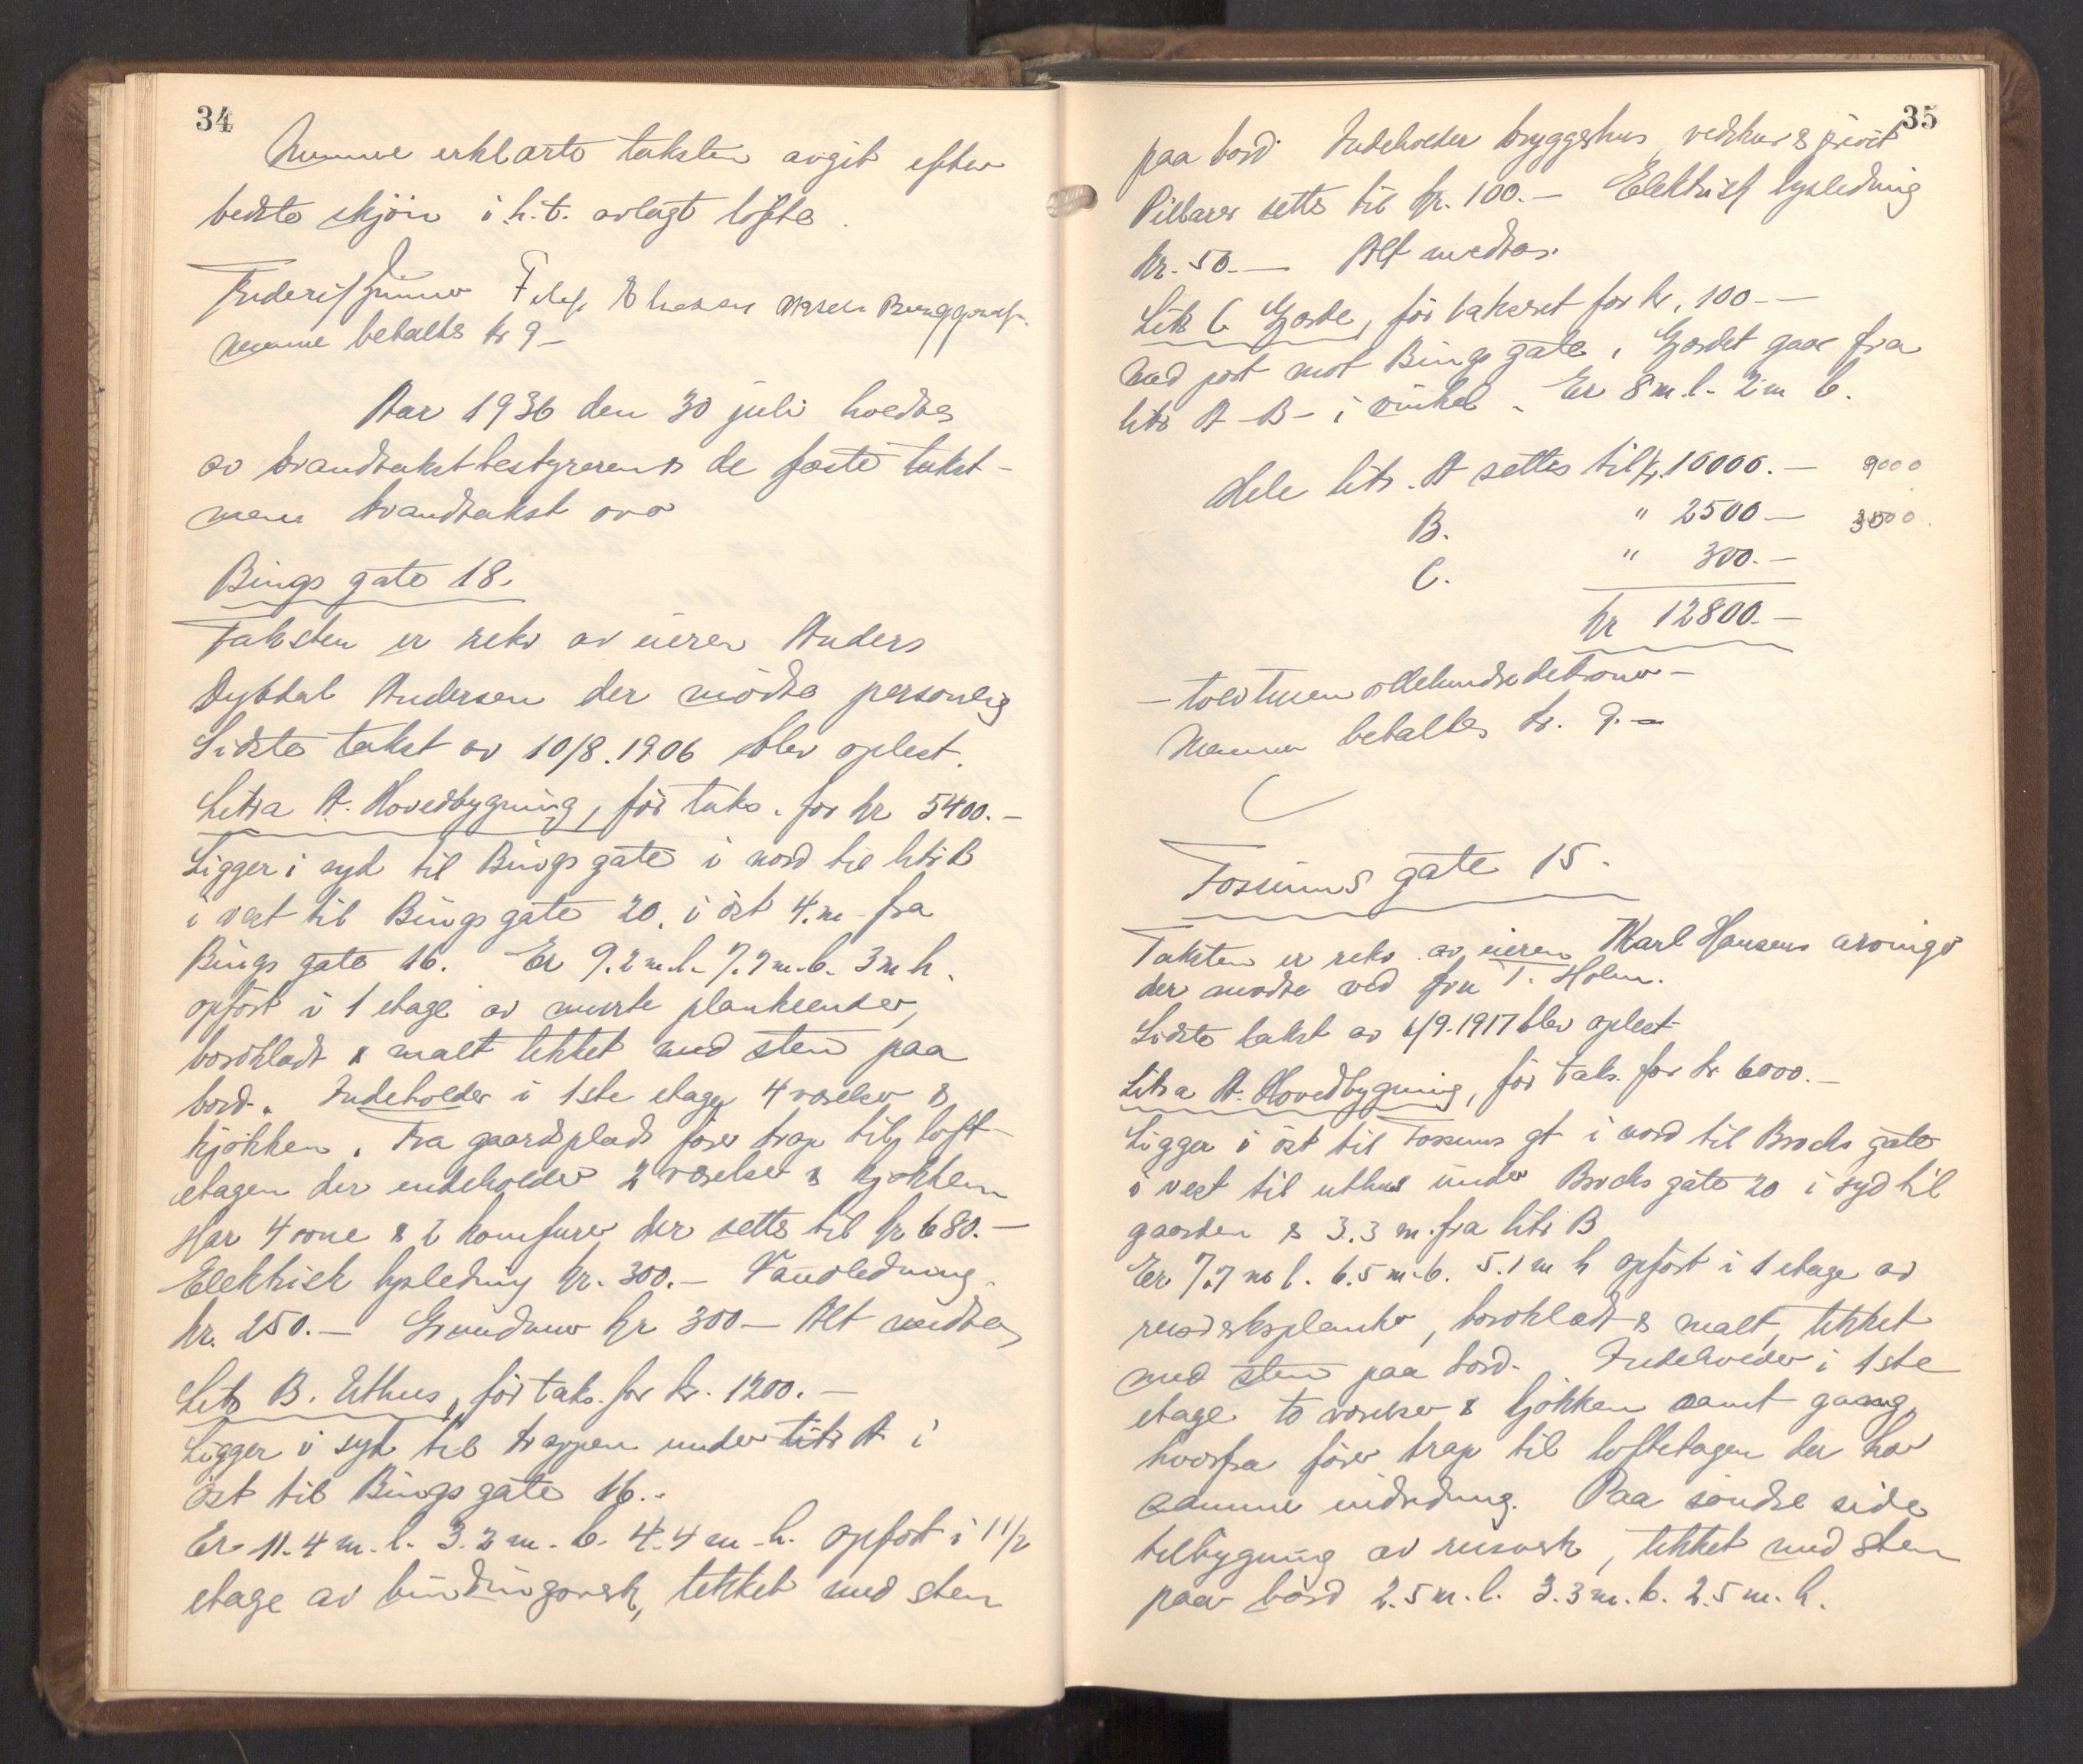 34
erklærte taksten avgit efter
bedste skjön i h.t. avlagt löfte.
betaltes kr 9 -
Aar 1936 den 30 juli holdtes
av brandtakstbestyreren & de faste takst-
mænn brandtakst over
Bings gate 18.
Taksten er rekv av eieren Anders
Dybdal Andersen der mödte personlig
Sidste takst av 10/8.1906 blev oplest.
Litra A. Hovedbygning, för taks. for kr 5400.-
Ligger i syd til Bings gate i nord til litr B
i vest til Bings gate 20. i öst 4.m fra
Bings gate 16. Er 9.2 m.l. 7.7 m.b. 3 m h.
opfört i 1 etage av murte plankeender,
bordklædt & malt tekket med sten paa
bord. Indeholder i 1ste etage 4 værelser &
kjökken. Fra gaardsplads förer trap til loft-
etagen der indeholder 2 værelser & kjökken
Har 4 ovne & 2 komfurer der settes til kr 680.-
Elektrisk lysledning kr. 300.- Vandledning
kr. 250.- Grundmur kr 300- Alt medtas
Litr B. Uthus, för taks. for kr. 1200.-
Ligger i syd til trappen under litr A i
öst til Bings gate 16.
Er 11.4 m.l. 3.2 m.b. 4.4 m.h. opfört i 1 1/2
etage av bindingsverk, tekket med sten
35
paa bord. Indeholder bryggehus, vedskur & privet
Pillarer settes til kr. 100.- Elektrisk lysledning
kr. 50.- Alt medtas.
Litr C Gjærde, för taksert for kr. 100.-
Med port mot Bings gate. Gjerdet gaar fra
litr A-B- i vinkel. Er 8 m.l. 2 m b.
Hele litr. A settes til kr. 10000.- 9000
B. " 2500- 3500
C. " 300.-
kr 12800.-
- tolvtusen ottehundrede kroner -
betaltes kr. 9.-
Fossums gate 15.
Taksten er rekv. av eieren Karl Hansens arvinger
der mödte ved fru T. Holm.
Sidste takst av 4/9.1917 blev oplest
Litra A. Hovedbygning, för taks. for kr 6000.-
Ligger i öst til Fossums gt i nord til Brochs gate
i vest til uthus under Brochs gate 20 i syd til
gaarden & 3.3 m. fra litr B
Er 7.7 m l. 6.5 m.b. 5.1 m h opfört i 1 etage av
reisverksplanker, bordklædt & malt, tekket
med sten paa bord. Indeholder i 1ste
etage to værelser & kjökken samt gang,
hvorfra förer trap til loftetagen der har
samme inredning. Paa söndre side
tilbygning av reisverk, tekket med sten
paa bord 2.5 m.l. 3.3 m.b. 2.5 m.h.